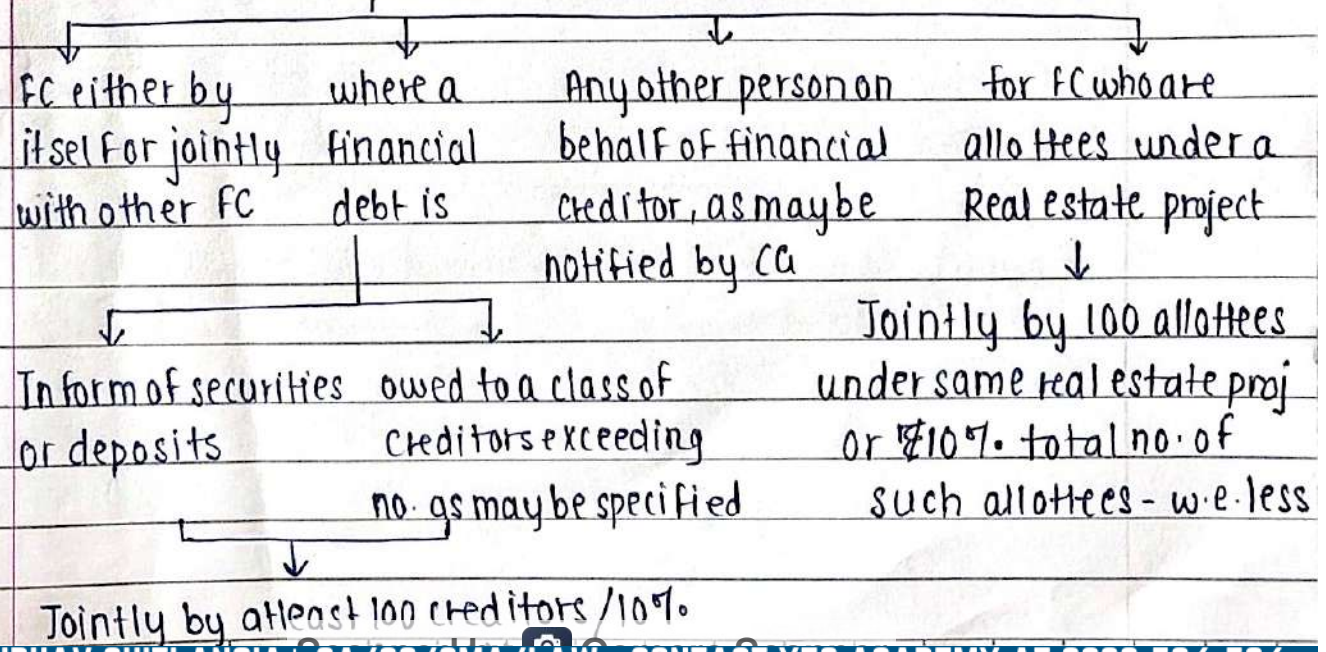 FC either by
itself or jointly
with other FC
where a
financial
debt is
Any other person on
behalf of financial
creditor, as may be
notified by CG
for FC who are
allottees under a
Real estate project
In form of securities
or deposits
owed to a class of
creditors exceeding
no. as may be specified
Jointly by 100 allottees
under same real estate proj
or ≮10% total no. of
such allottees - w.e. less
Jointly by atleast 100 creditors /10%